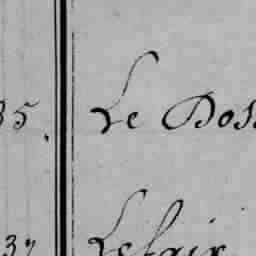 85. Le Dos
37 Lefair